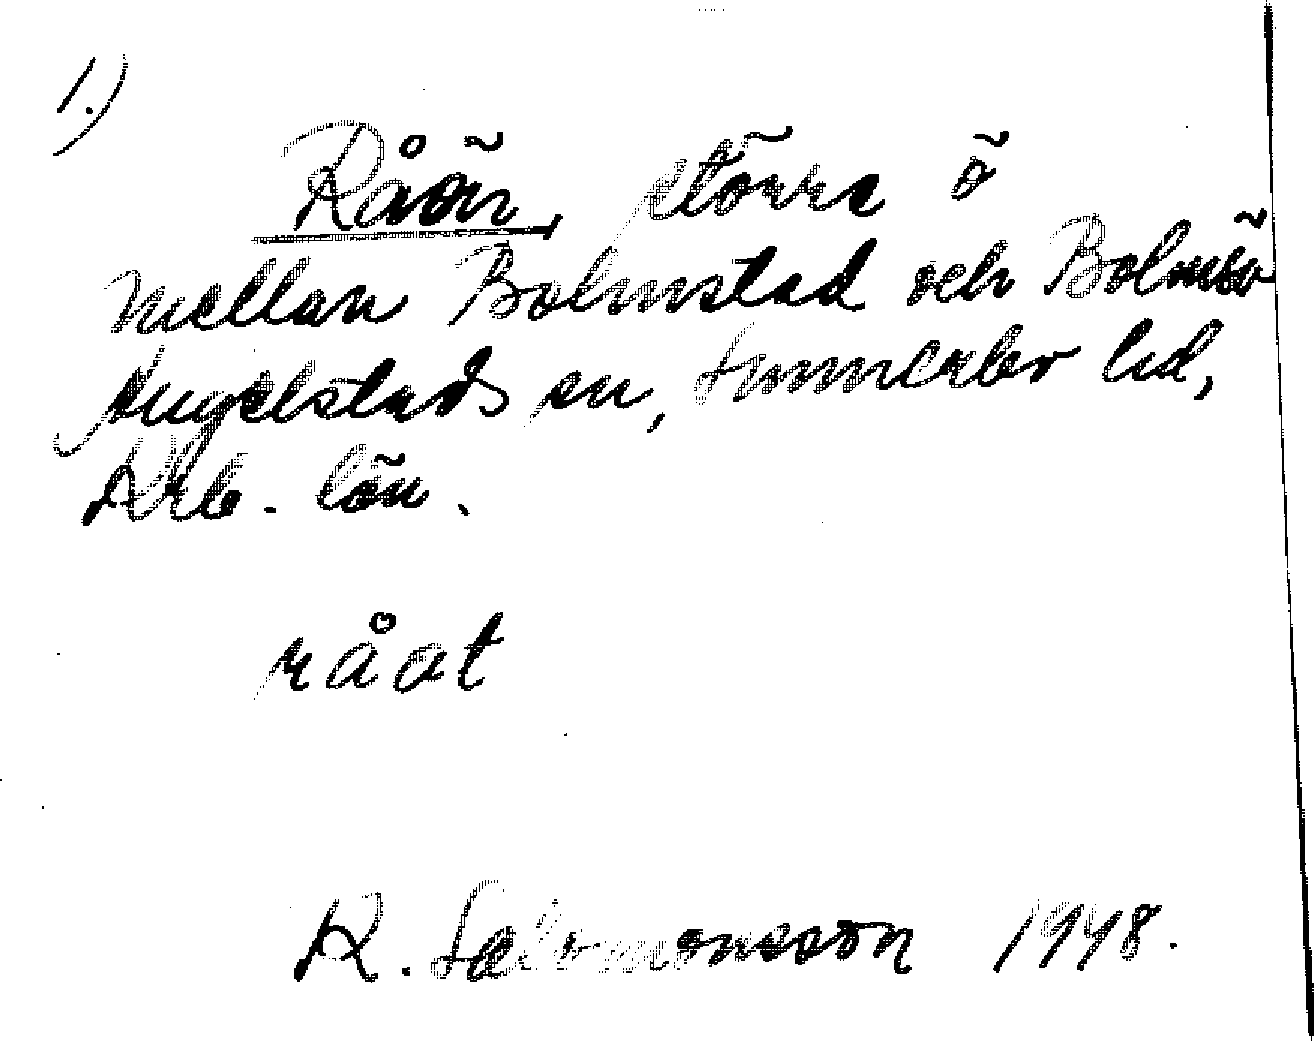 1.)
Råön, större ö
mellan Bolmstad och Bolmsö
Angelstads sn, Sunnerbo hd,
Krb. län.
råat
R. Salomonsson 1948.